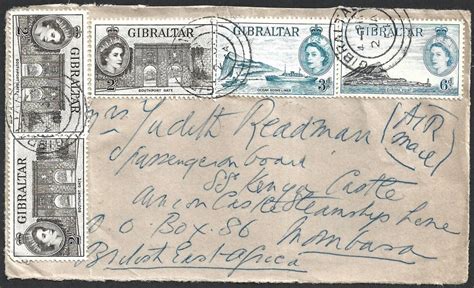 GIBRALTAR
2d
SOUTHPORT GATE
GIBRALTAR
3d
OCEAN GOING LINER
GIBRALTAR
6d
GIBRALTAR
GIBRALTAR
SOUTHPORT GATE
GIBRALTAR
2d
Mrs Judith Readman (AIR
Passenger on board mail)
SS. Kenya Castle
Union Castle Steamship Line
P.O. Box. 86 Mombasa
British East-africa